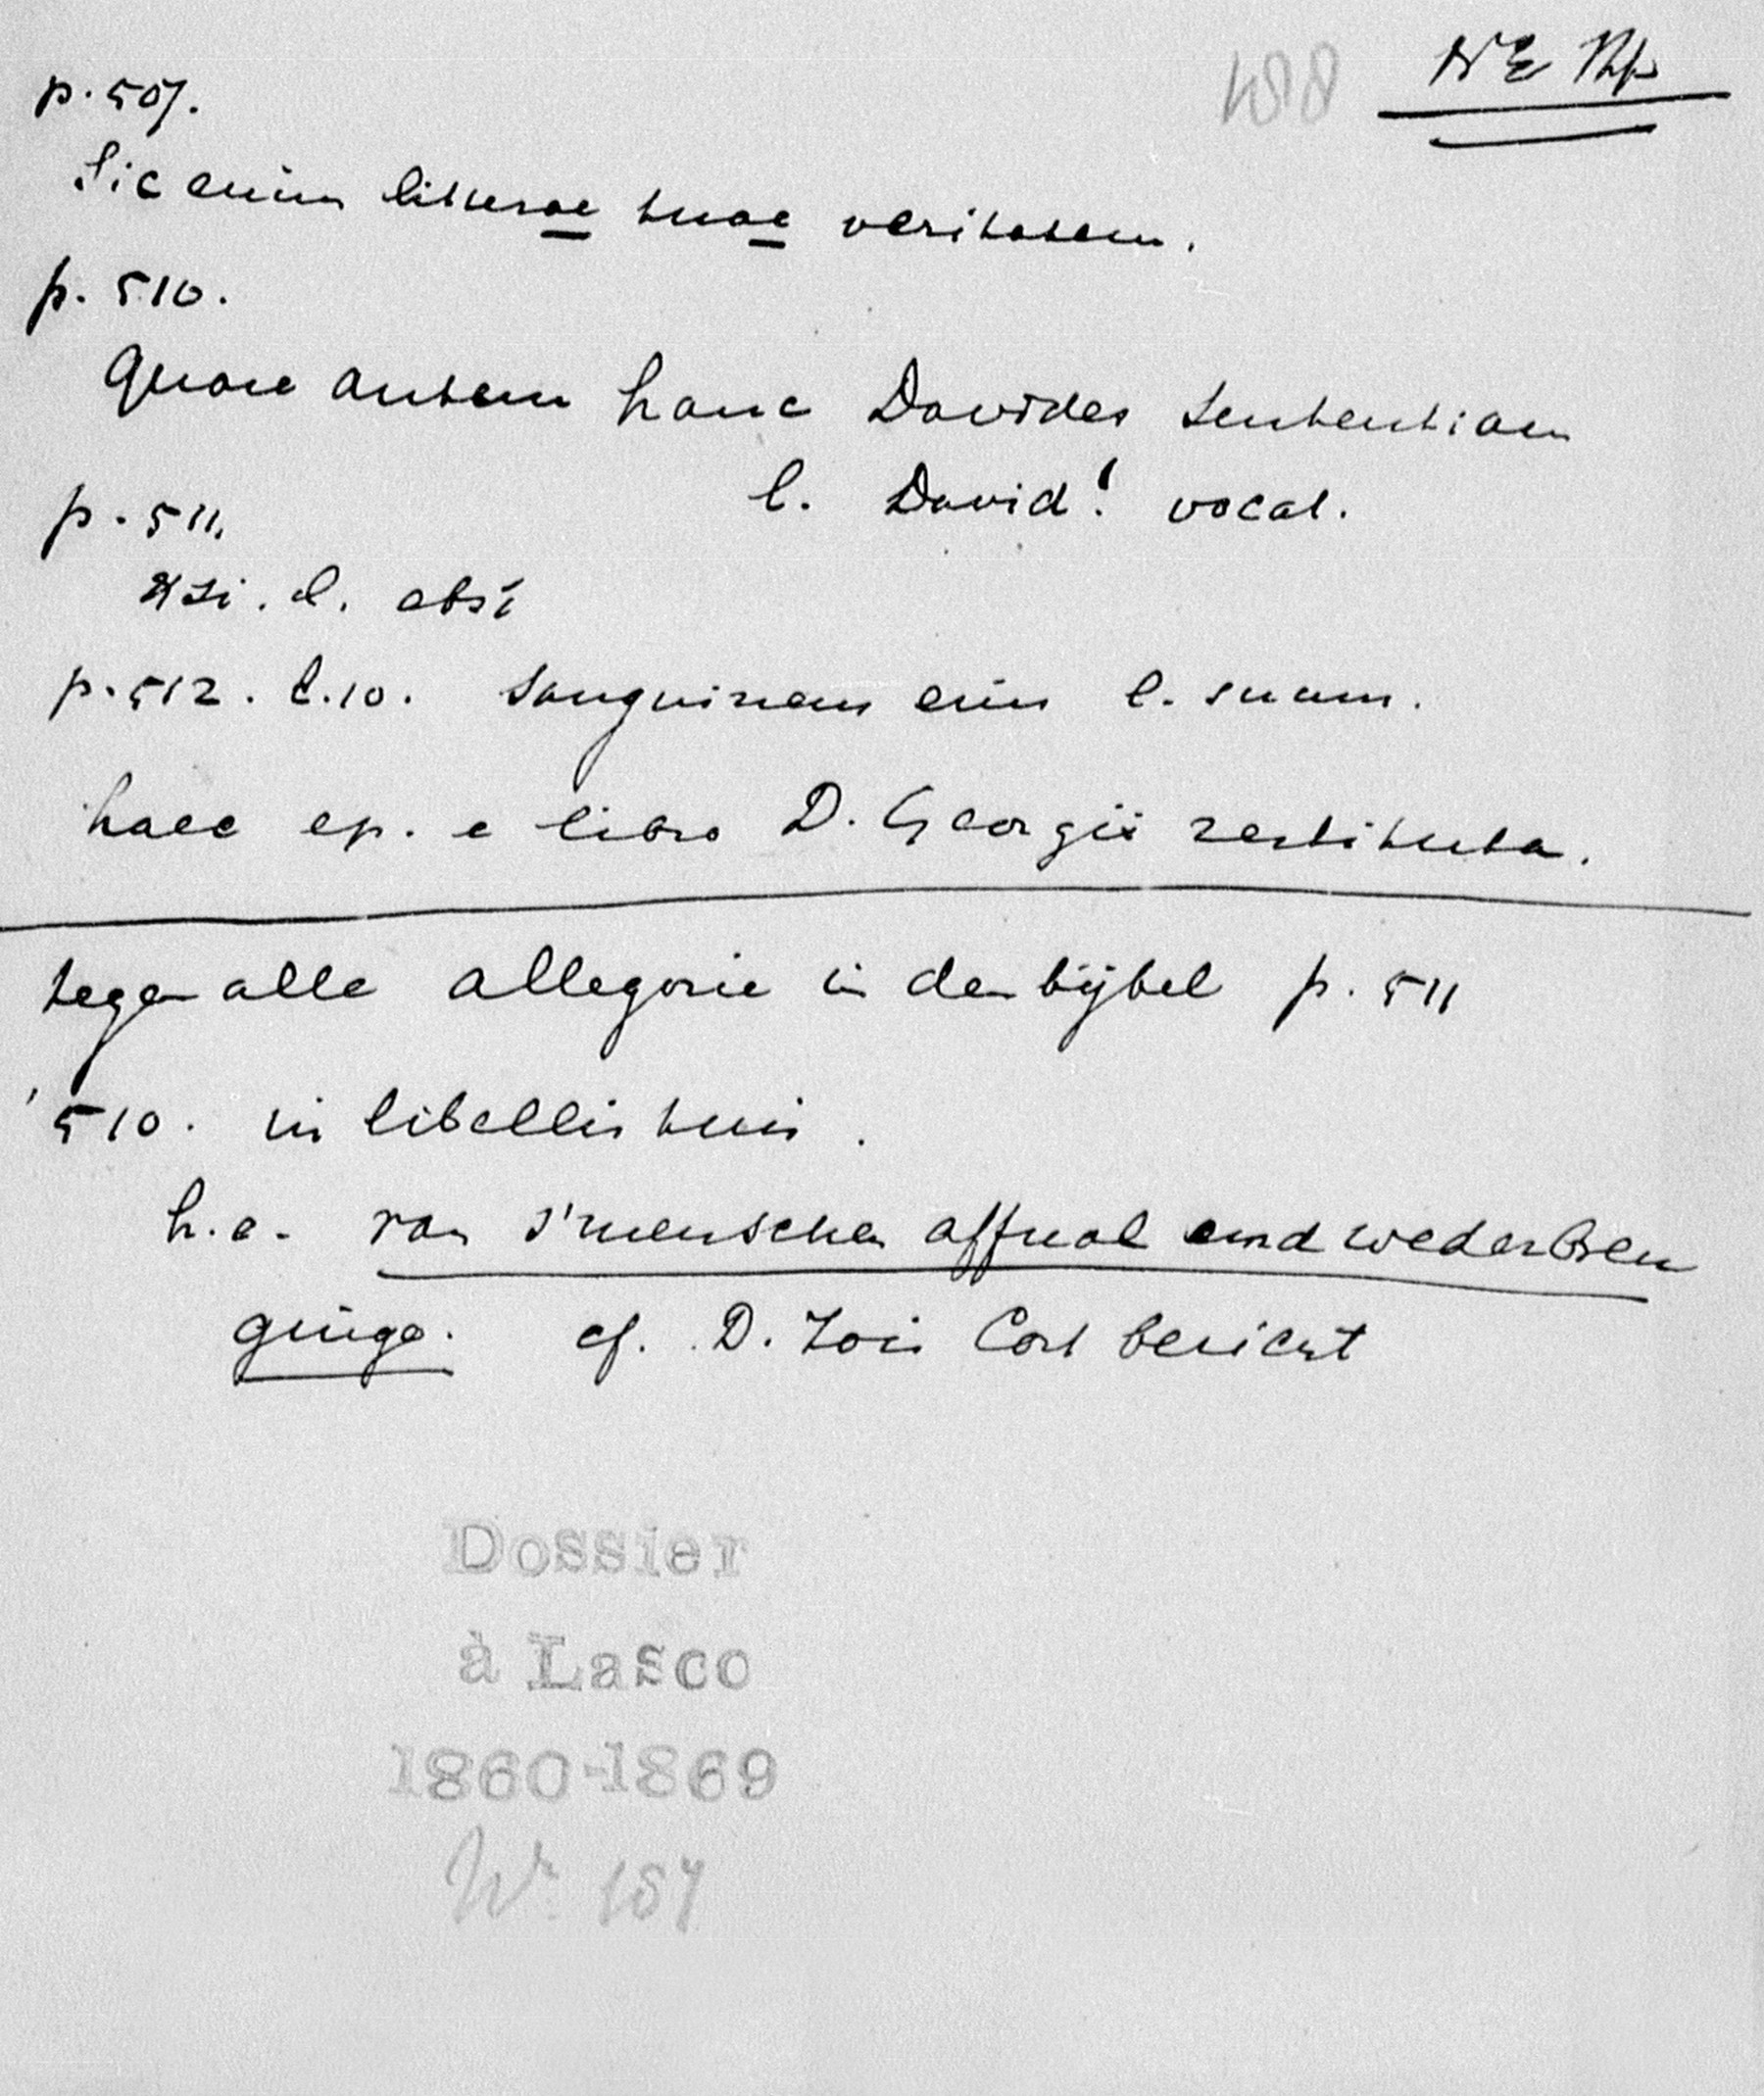 488
p. 507.
Sic enim litterae tuae veritatem.
p. 510.
Quare autem hanc Davides sententiam
l. David! vocat.
p. 511.
si. l. absi
p. 512. l. 10. sanguinem eius l. suum.
haec ep. e libro D. Georgii restituta.
tegen alle allegorie in den bijbel p. 511
510. in libellis tuis.
h.e. van s'menschen affual end wederbren
ginge. cf. D. Joris Cort bericht
Dossier
à Lasco
1860-1869
No. 157